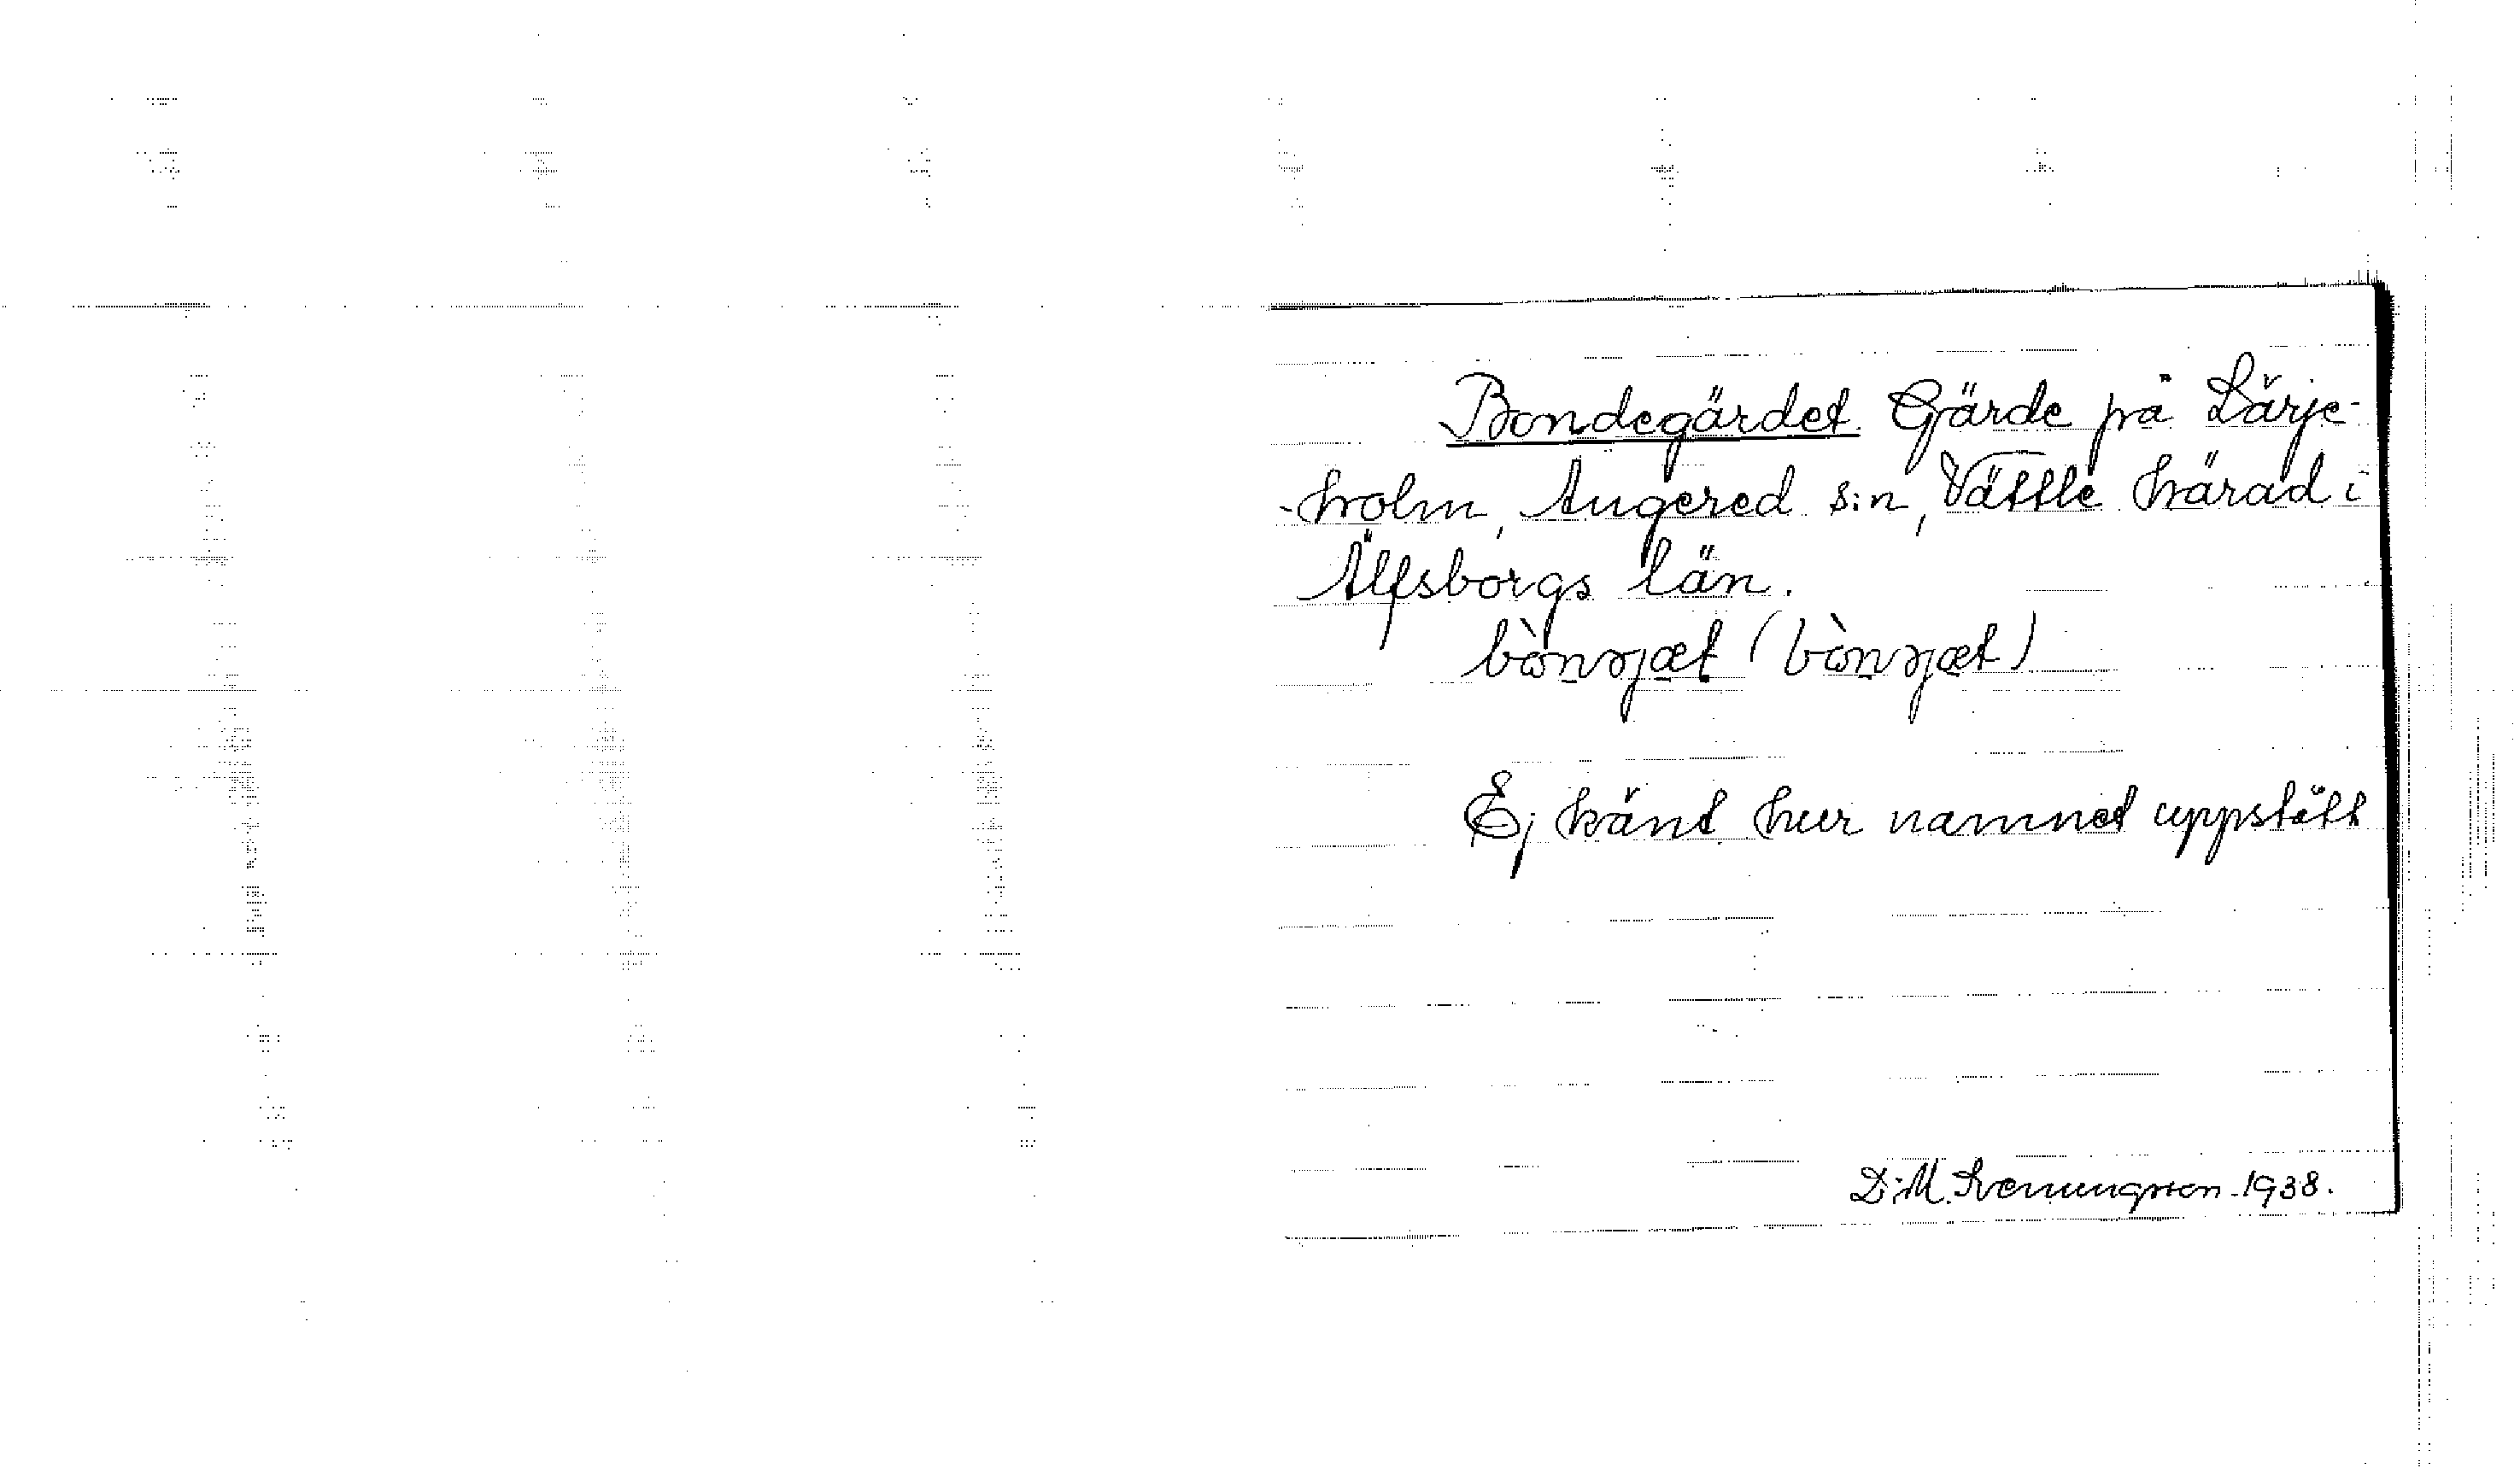 Bondegärdet. Gärde på Lärje-
-holm, Angered s:n, Vättle härad i
Älfsborgs län.
bònsjæt (bònsjæt)
Ej känt hur namnet uppstått
D:M. Svenungsson 1938.